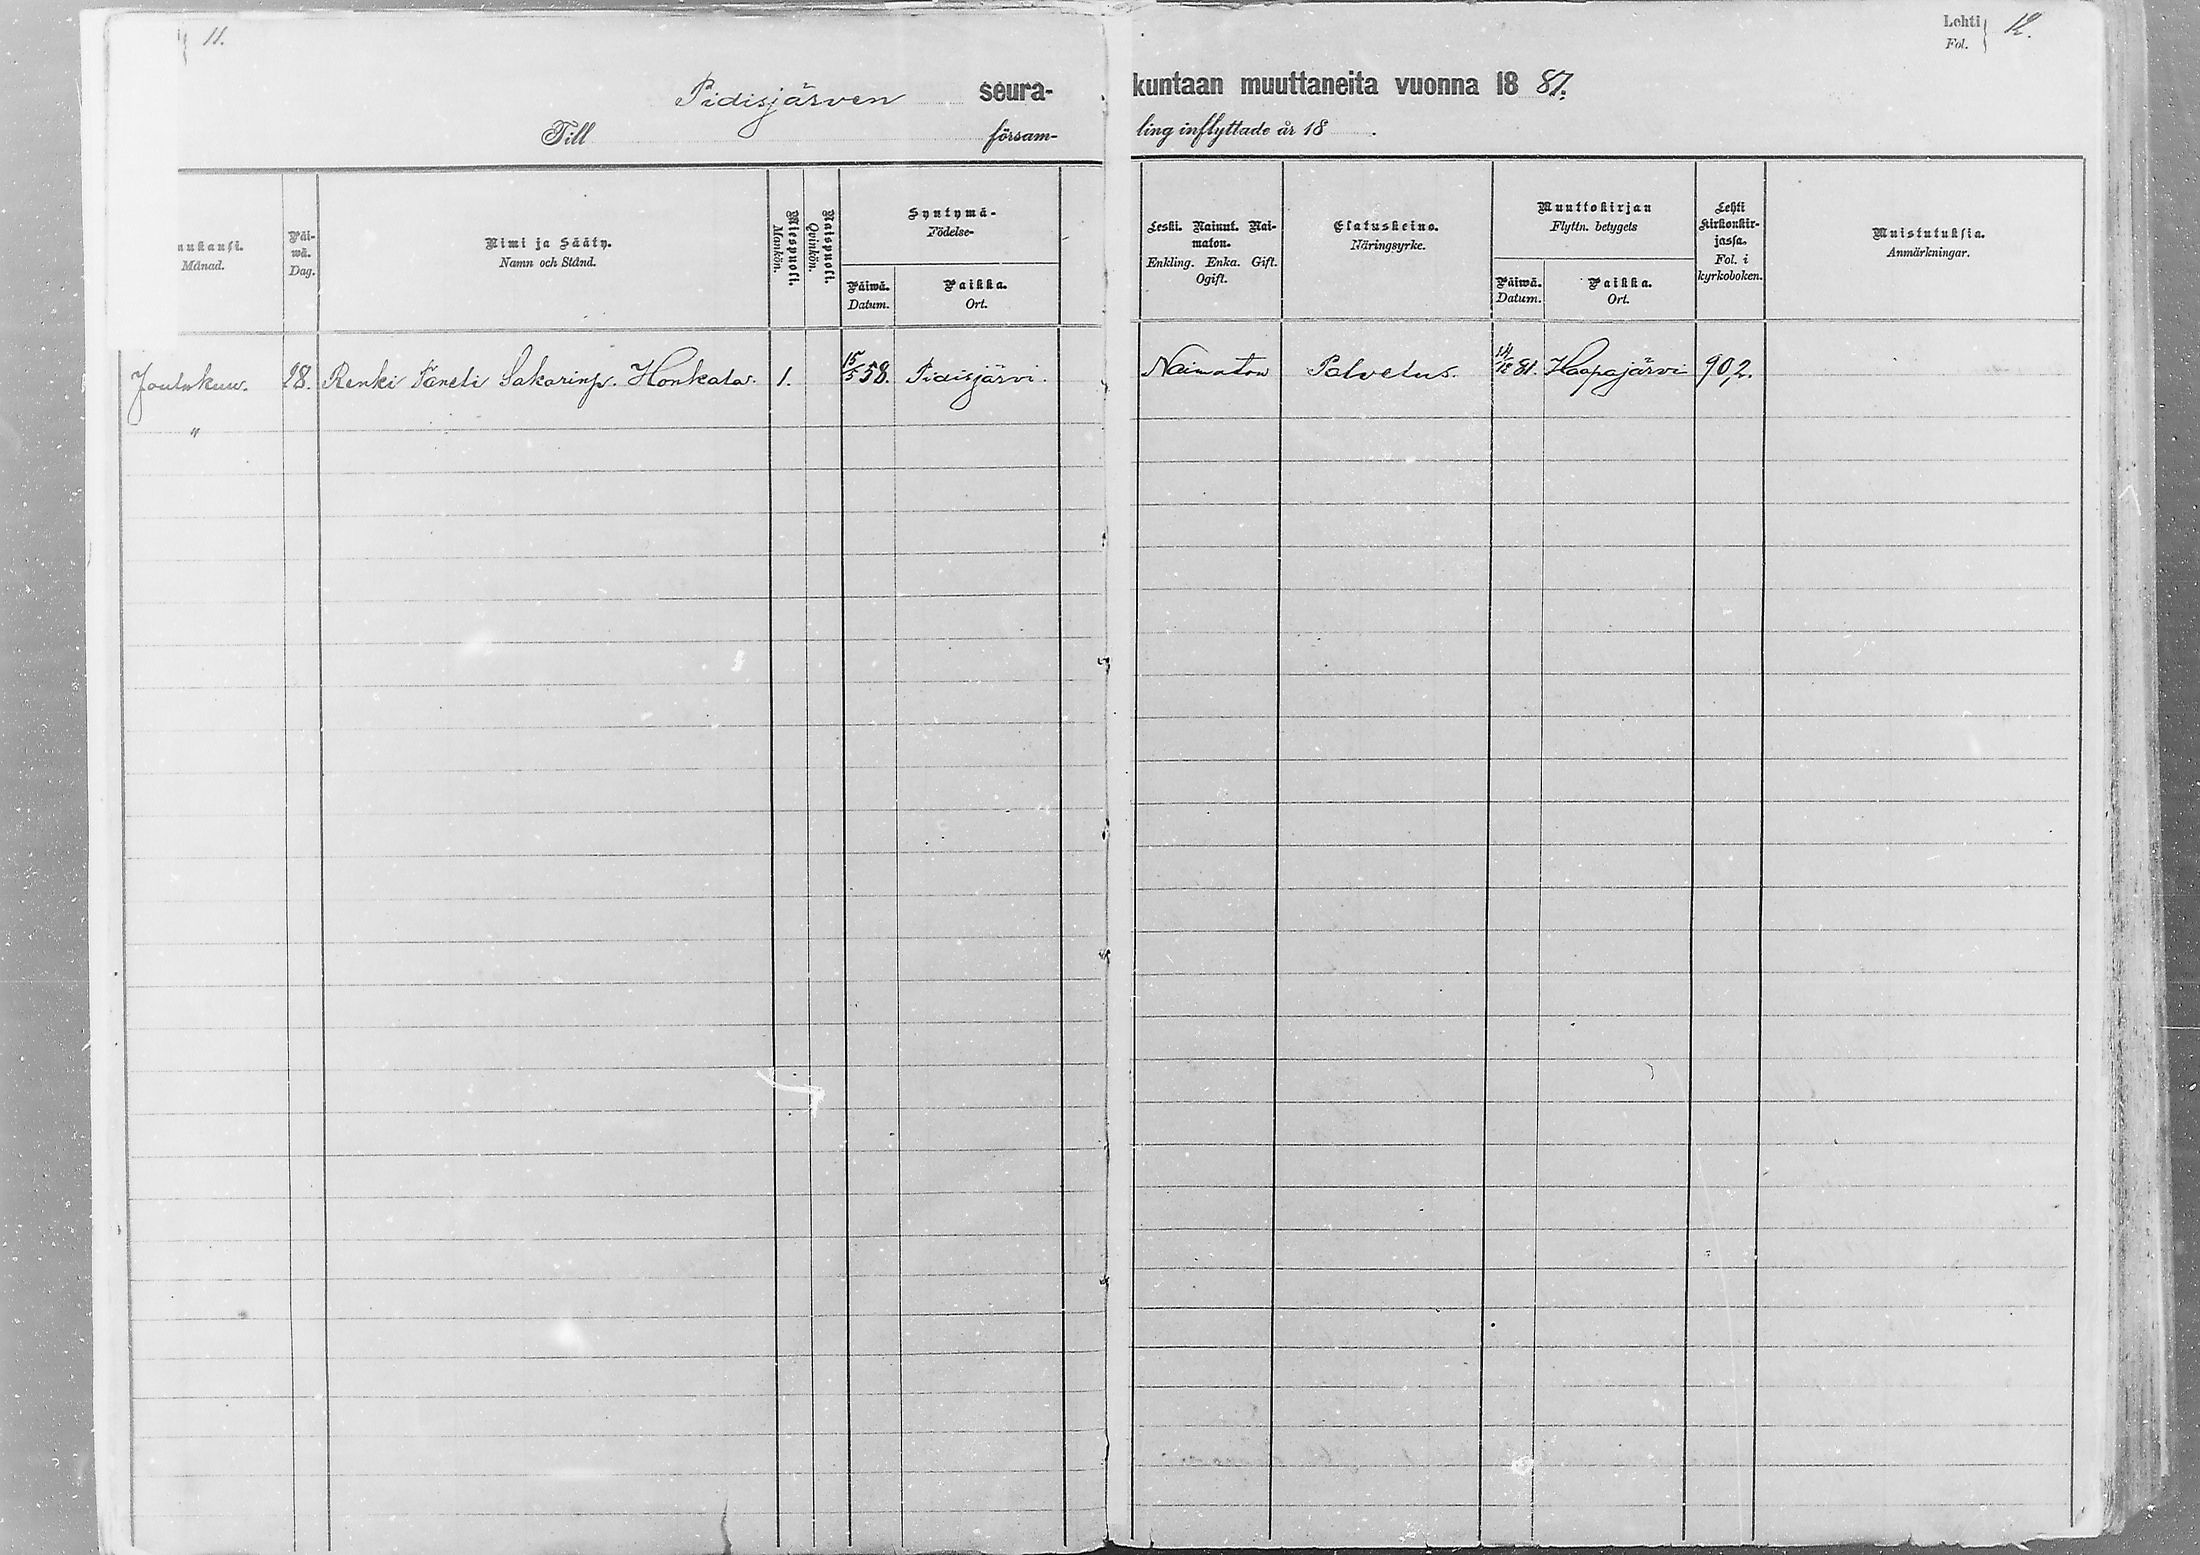 11.
Lehti
Fol. } 12.
Pidisjärven seura-kuntaan muuttaneita vuonna 18 87.
Till försam-ling inflyttade år 18 .
nukausi.
Månad.
Päi-
wä.
Dag.
Nimi ja Sääty.
Namn och Stånd.
Miespuoli.
Mankön.
Naispuoli.
Qvinkön.
Syntymä-
Födelse-
Päiwä.
Datum.
Paikka.
Ort.
Leski. Nainut. Nai-
maton.
Enkling. Enka. Gift.
Ogift.
Elatuskeino.
Näringsyrke.
Muuttokirjan
Flyttn. betygets
Päiwä.
Datum.
Paikka.
Ort.
Lehti
Kirkonkir-
jassa.
Fol. i
kyrkoboken.
Muistutuksia.
Anmärkningar.
Joulukuu. 28. Renki Taneli Sakarinp. Honkala. 1. 15/5 58. Pidisjärvi. Naimaton Palvelus. 81. Haapajärvi 902.
"